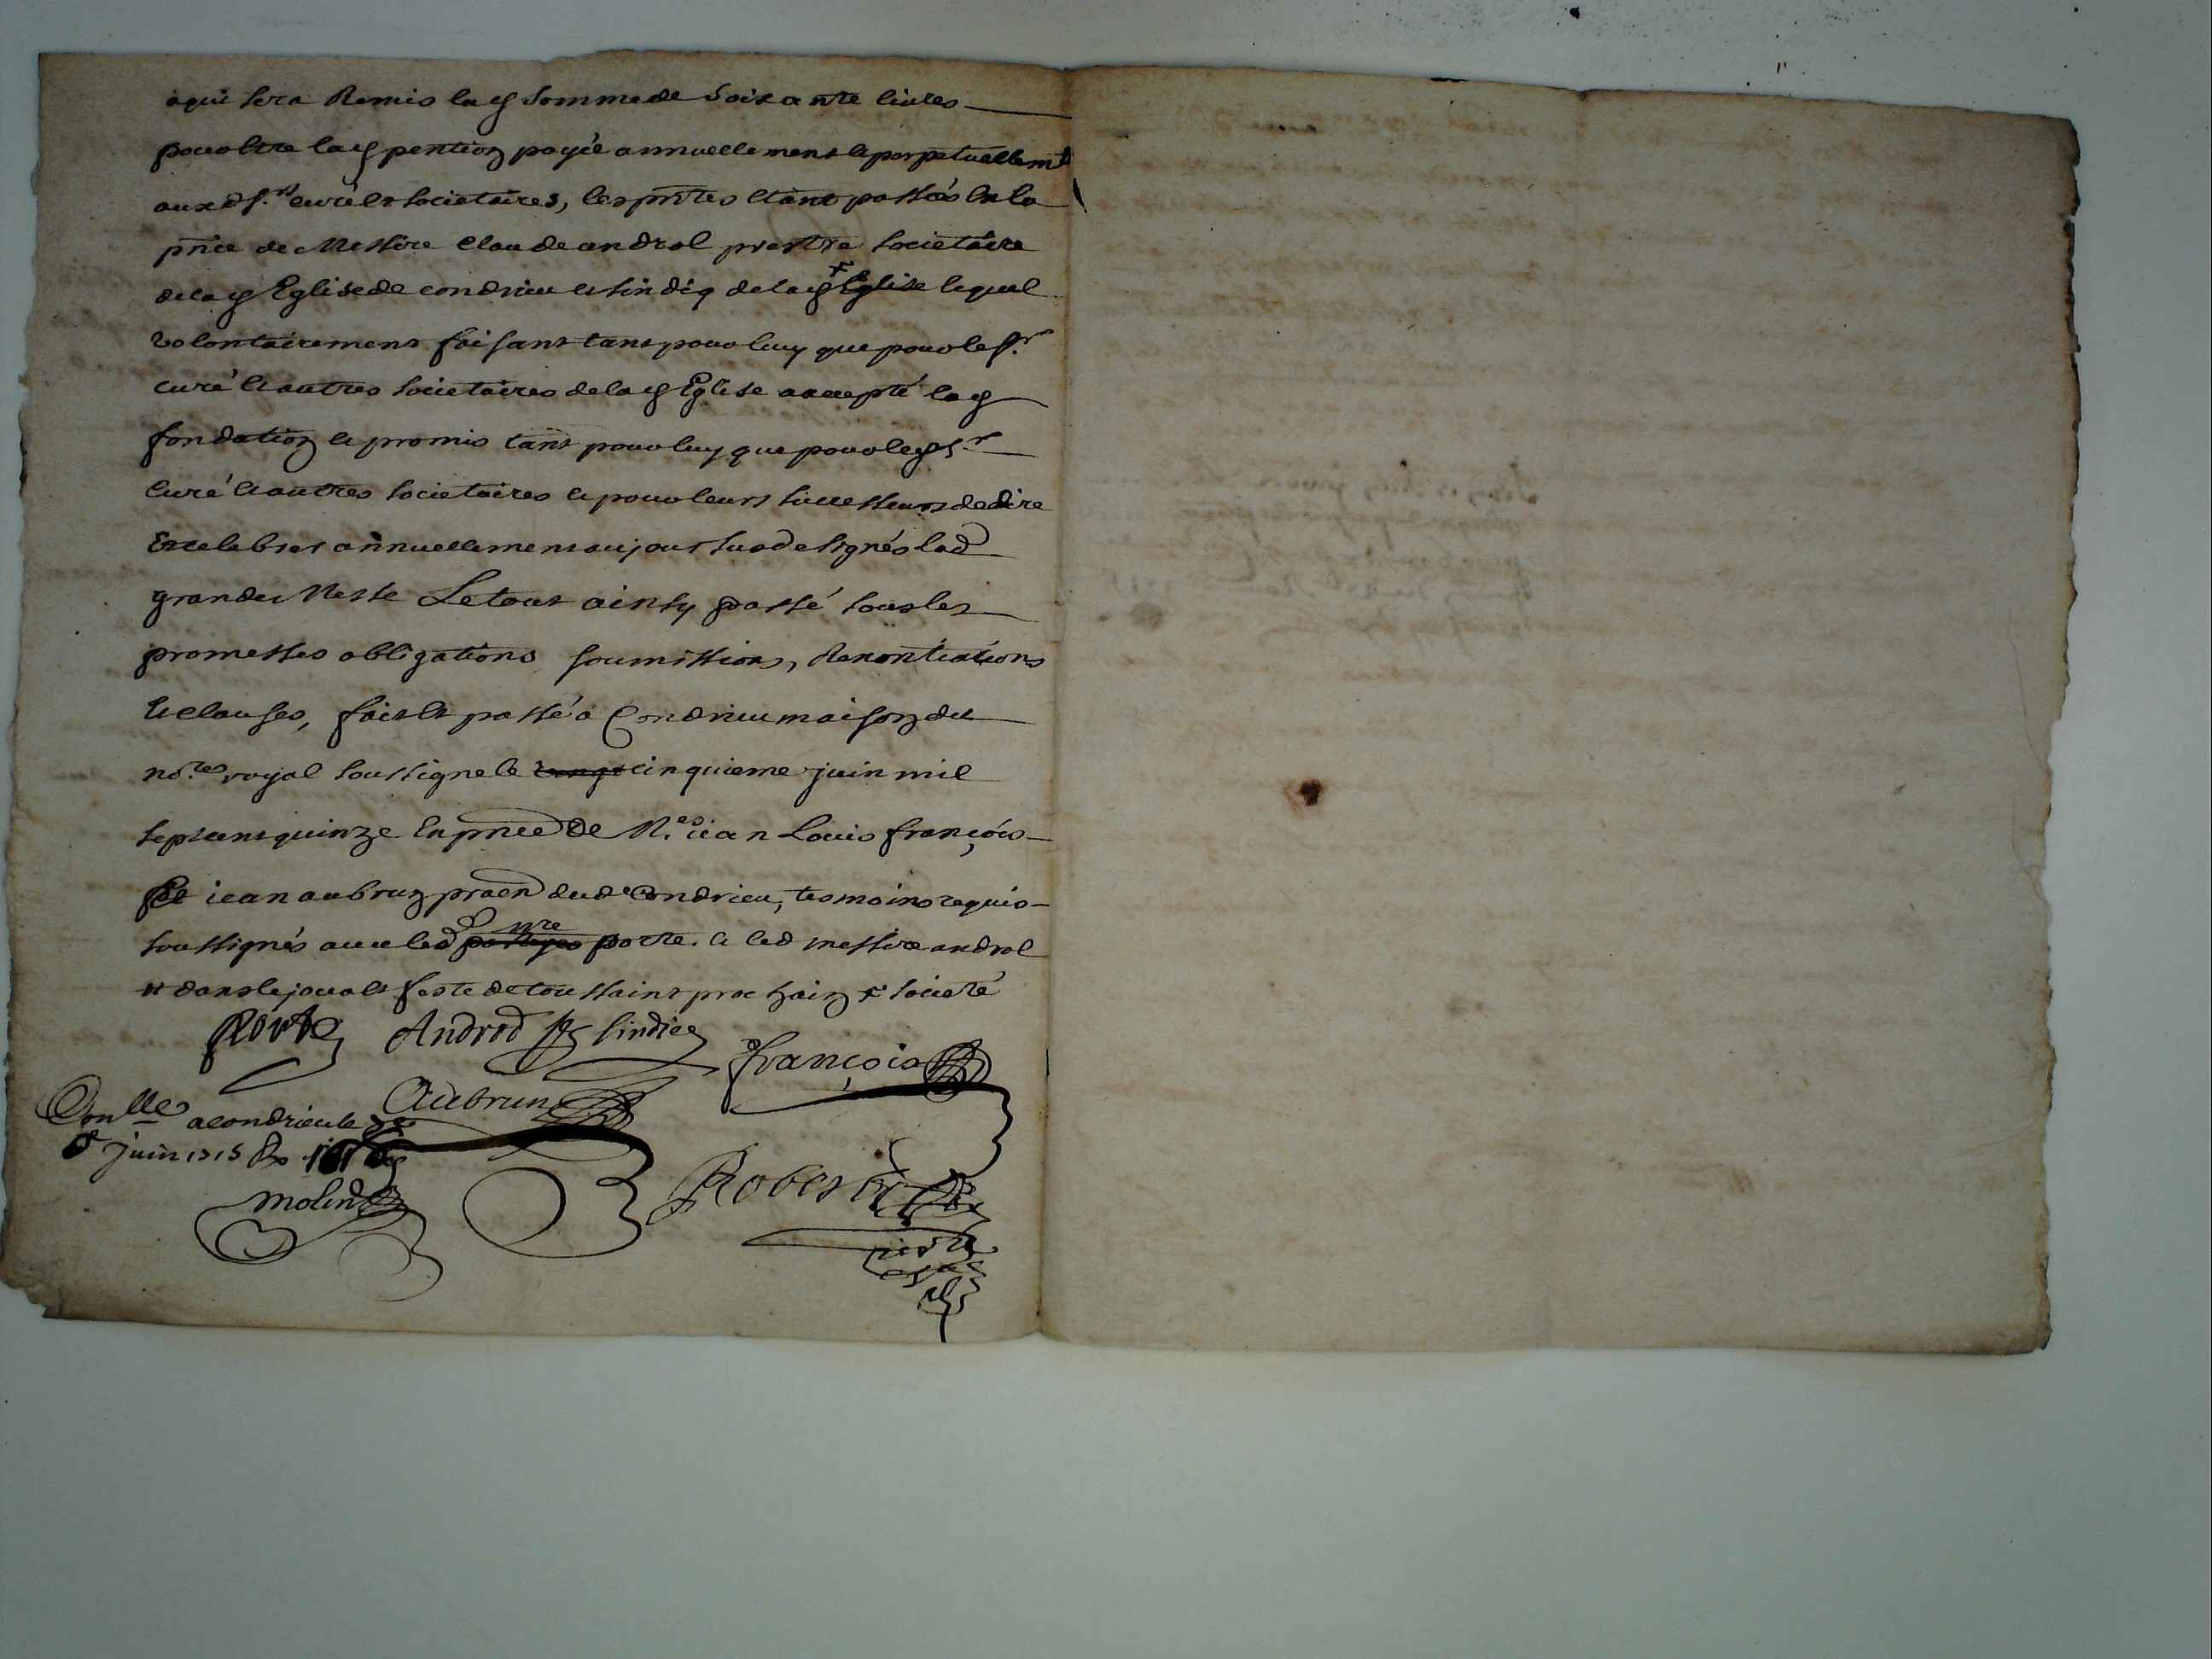 a qui sera Remis lad somme de soixante livres
pour estre lad pention payée annuellement et perpetuellemt
auxd srs curé et societaires, les pntes etant passées en la
pnce de Messire Claude androl prestre societaire
de lad Eglise de condrieu et sindiq de lad + Eglise lequel
volontairement faisant tant pour luy que pour le sr
curé et autres societaires de lad Eglise accepté lad
fondation et promis tant pour luy que pour led sr
Curé et autres societaires et pour leurs successeurs de dire
Et celebrer annuellement au jour sus designés lad
grande Messe Le tout ainsy passé sous les
promesses obligations soumissions, Renontiations
Et clauses, fait et passé a Condrieu maison du
nore royal soussigne le cinquieme juin mil
sept cent quinze En pnce de Me jean Louis françois
Et jean aubrun praen dud Condrieu, tesmoins requis
soussignés avec led porte. et led messire androl
# dans le jour et feste de toussaint prochain + societé
Porte Androl sindic
françois
Aubrun
Conlle a condrieu le
juin 1715
molin
Robert